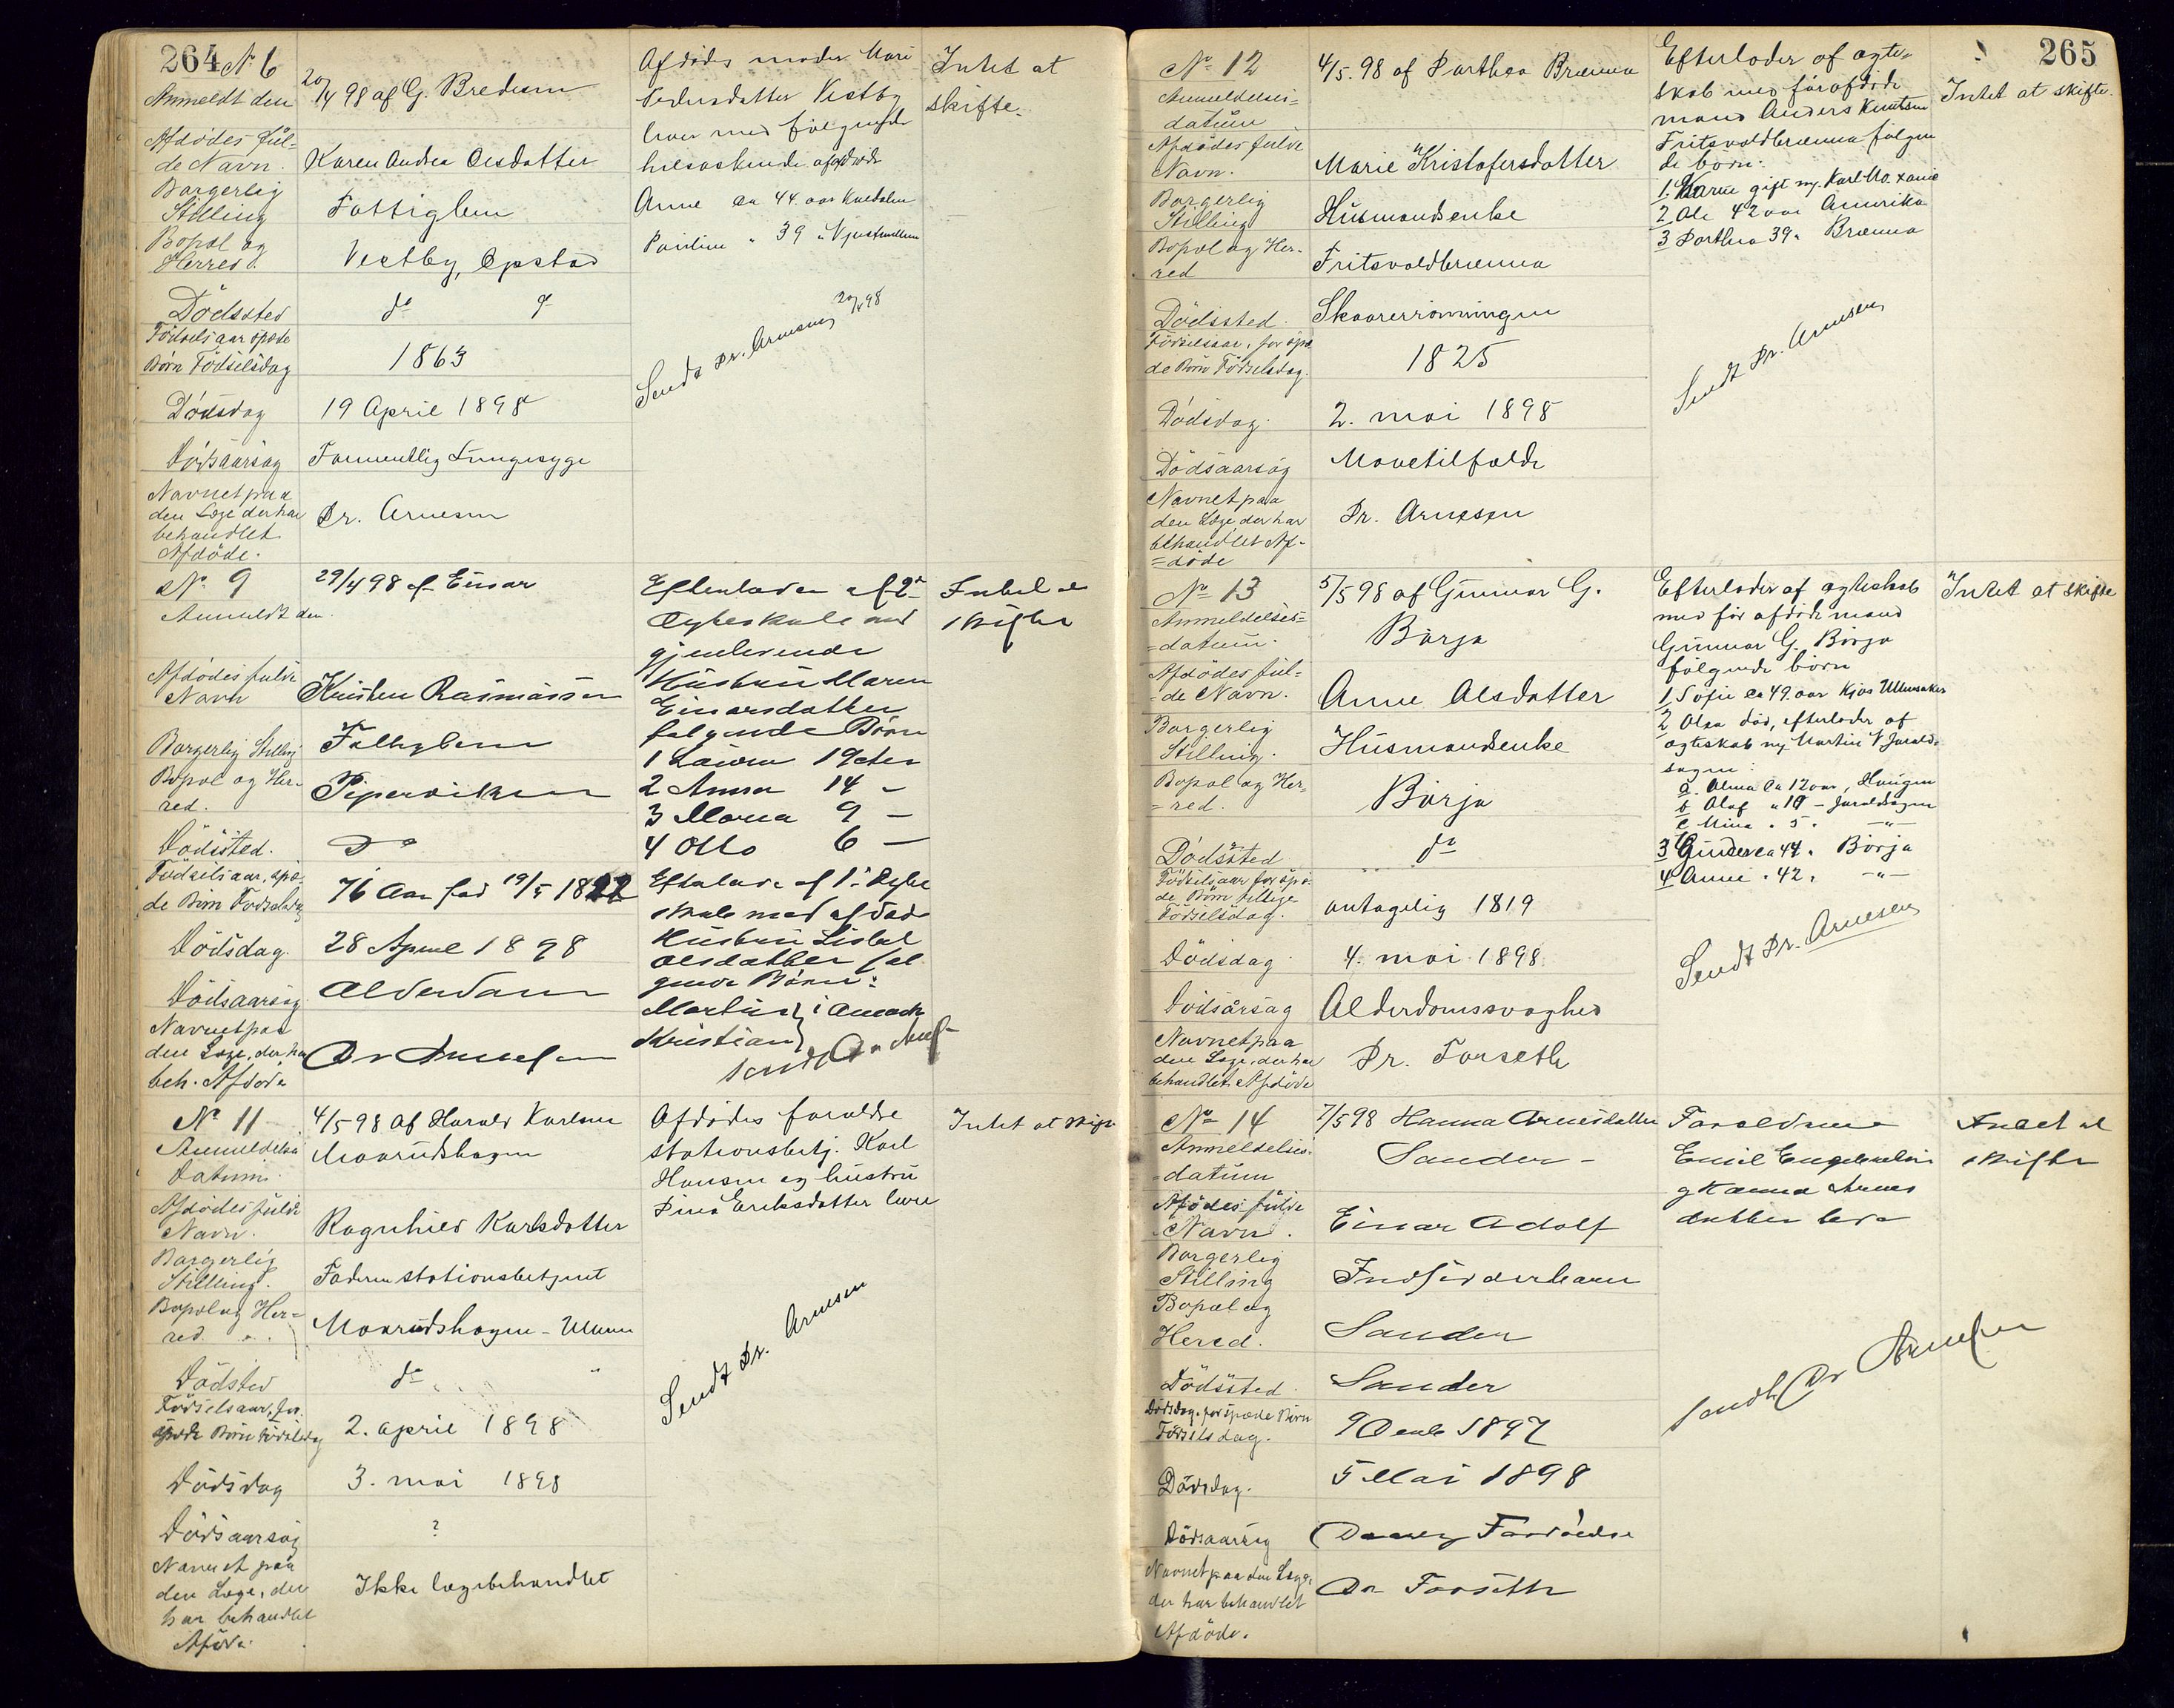 264 No 6
Anmeldt den
20/4 98 af G. Bredesen
Afdødes ful-
de Navn.
Karen Andrea Olsdatter
Borgerlig
Stilling
Fattiglem
Bopæl og
Herred.
Vestby, Opstad
Dødssted
do
Fødselsaar spæde
Børn Fødselsdag
1863
Dødsdag
19 April 1898
Dødsaarsag
Formentlig Lungesyge
Navnet paa
den Læge der har
behandlet
Afdöde.
Dr. Arnesen
Afdødes moder Mari
Pedersdatter Vestby
lever med følgende
helsøskende af afdøde
Anne ca 44 aar
Pauline " 39 "
Sendt Dr. Arnesen 20/4 98
Intet at
skifte.
No 9
Anmeldt den
29/4 98 af Einar
Afdödes fulde
Navn
Kristen Rasmussen
Borgerlig Stilling
Fattiglem
Bopæl og Her-
red.
Piperviken
Dødssted.
Do
Fødselsaar, spæ-
de Børn Fødselsdag
76 Aar fød 19/5 1822
Dödsdag.
28 April 1898
Dödsaarsag
Alderdom
Navnet paa
den Læge, der har
beh. Afdøde
Dr Arnesen
Efterlader af 2det
Egteskab med
gjenlevende
Hustru Maren
Einarsdatter
følgende Børn
1 Laura 19 Aar
2 Anna 14 -
3 Maria 9 -
4 Otto 6 -
Efterlader af 1ste Egte
skab med afdød
Hustru Lisbet
Olsdatter føl
gende Børn:
Martin } i Amerika
Kristian }
Sendt Dr Arnesen
Intet at
skifte
No 11
Anmeldelses
Datum.
4/5 98 af Harald Karlsen
Maarudshagen
Afdødes fulde
Navn.
Ragnhild Karlsdatter
Borgerlig
Stilling.
Faderen stationsbetjent
Bopæl og Her-
red.
Maarudshagen - Ullern
Dødsted
do "
Fødselsaar, for
spæde Børn Fødselsdag
2. april 1898
Dødsdag
3. mai 1898
Dødsaarsag
?
Navnet paa
den Læge, der
har behandlet
Afdøde.
Ikke lægebehandlet
Afdødes forældre
stationsbetj. Karl
Hansen og hustru
Dina Eriksdatter lever
Sendt Dr. Arnesen
Intet at skifte
265
No 12
Anmeldelses-
datum
4/5. 98 af Parthea Brænna
Afdödes fulde
Navn.
Marie Kristofersdatter
Borgerlig
Stilling
Husmandsenke
Bopæl og Her-
red
Fritsvoldbrænna
Dødssted.
Skaarerrønningen
Fødselsaar, for spæ
de Børn Fødselsdag.
1825
Dødsdag.
2. mai 1898
Dødsaarsag
Mavetilfælde
Navnet paa
den Læge, der har
behandlet Af-
=døde
Dr. Arnesen
Efterlader af ægte-
skab med før afdøde
mand Anders Knutsen
Fritsvoldbrænna følgen
de børn:
1. Karen gift m. Karl Mo
2 Ole 42 aar Amerika
3 Parthea 39 " Brænna
Sendt Dr. Arnesen
Intet at skifte.
No 13
Anmeldelses=
=datum.
5/5 98 af Gunnar G.
Børja
Afdödes ful=
=de Navn.
Anne Olsdatter
Borgerlig
Stilling.
Husmandsenke
Bopæl og Her=
=red.
Børja
Dødssted
do
Fødselsaar for spæ-
de Børn tillige
Fødselsdag.
antagelig 1819
Dödsdag
4. mai 1898
Dödsårsag
Alderdomssvaghed
Navnet paa
den Læge, der har
behandlet Afdøde
Dr. Forseth
Efterlader af ægteskab
med før afdøde mand
Gunnar G. Børja
følgende børn
1 Sofie ca 49. aar Kjos Ullensaker
2 Olea død, efterlader af
ægteskab m. Martin
a. Alma ca 12 aar, Haugen
b Olaf " 10 -
c Mina " 5 " - " -
3 Gunder ca 44 " Børja
4 Anne " 42 " - " -
Sendt Dr. Arnesen
Intet at skifte
No 14
Anmeldelses-
=datum
7/5 98 Hanna Arnesdatter
Sander -
Afdødes fulde
Navn.
Einar Adolf
Borgerlig
Stilling
Indsidderbarn
Bopæl og
Hered.
Sander
Dödssted.
Sander
Dødsdag. for spæde Børn
Fødselsdag.
9 Decmb 1897
Dødsdag.
5 Mai 1898
Dødsaarsag
Navnet paa den Læge,
der har behandlet
Afdöde.
Dr Forseth
Forældrene
Emil
og Hanna Arnes
datter lever
Sendt Dr Arnesen
Intet at
skifte